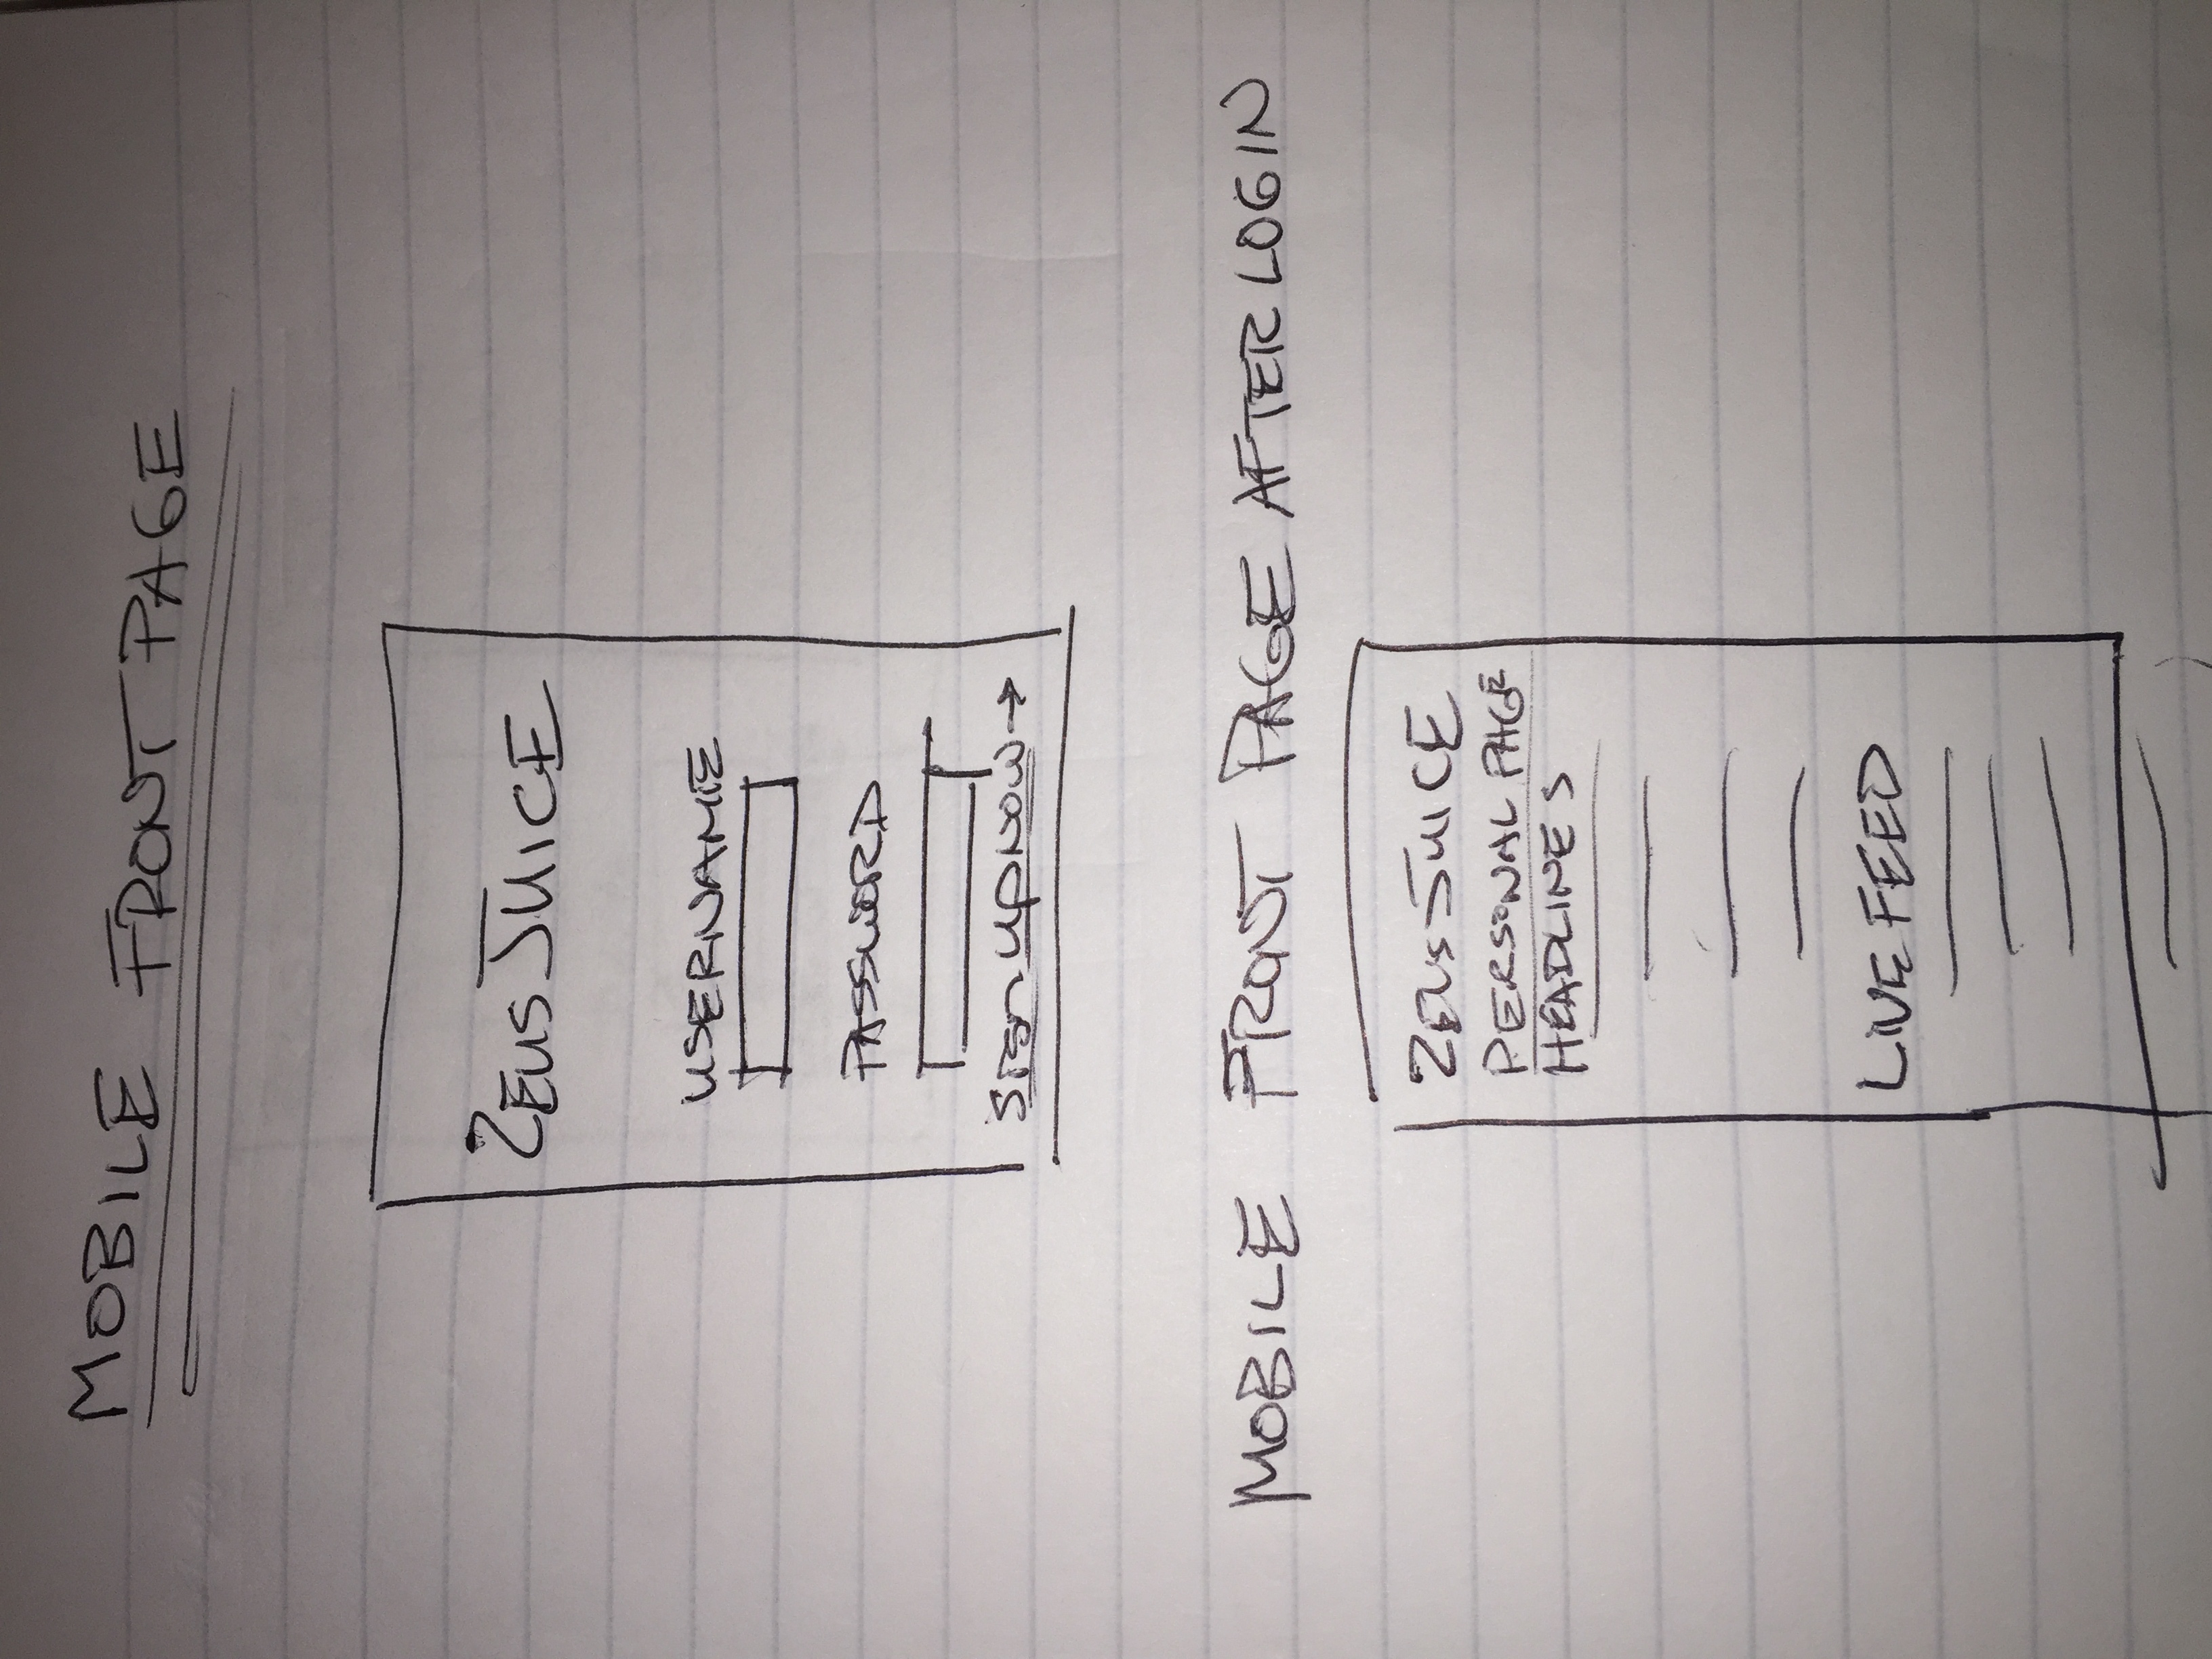 MOBILE FRONT PAGE
ZEUSJUICE
USERNAME
PASSWORD
Sign up now →
MOBILE FRONT PAGE AFTER LOGIN
ZEUSJUICE
PERSONAL PAGE
HEADLINES
LIVE FEED